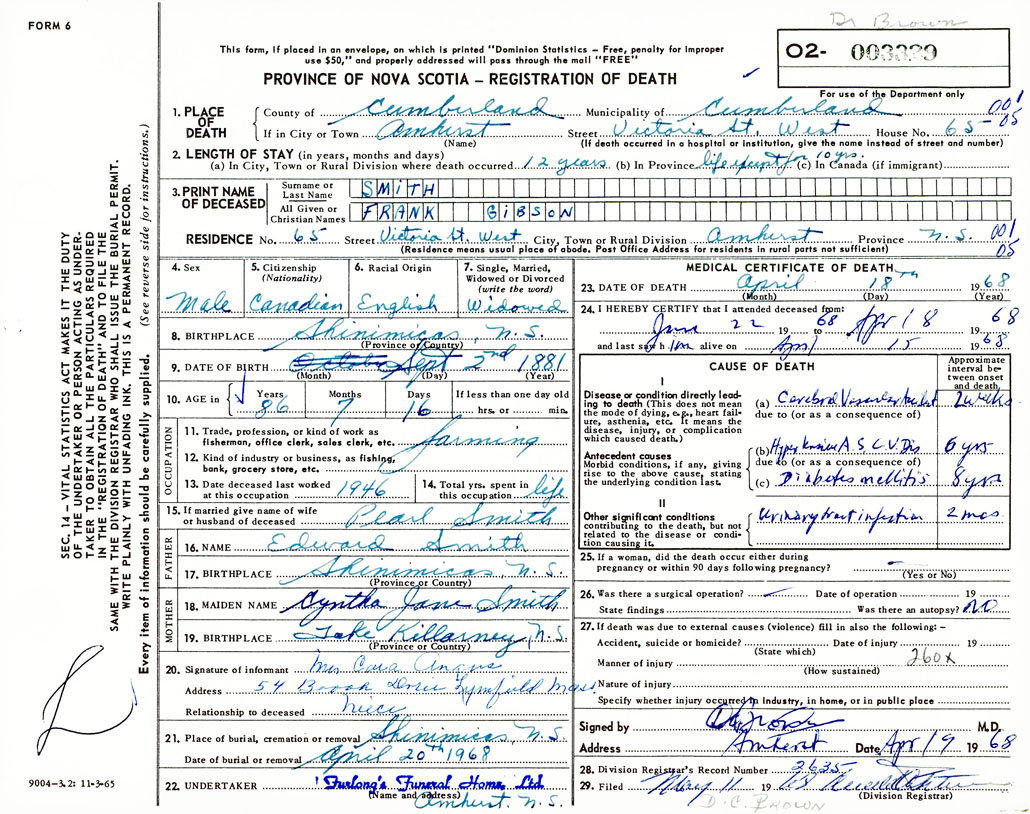 FORM 6
Dr Brown
This form, if placed in an envelope, on which is printed "Dominion Statistics – Free, penalty for improper
use $50," and properly addressed will pass through the mail "FREE"
PROVINCE OF NOVA SCOTIA – REGISTRATION OF DEATH
O2- 003339
For use of the Department only
001
05
1. PLACE OF DEATH
County of Cumberland Municipality of Cumberland
If in City or Town Amherst Street Victoria St. West House No. 65
(Name) (If death occurred in a hospital or institution, give the name instead of street and number)
2. LENGTH OF STAY (in years, months and days)
(a) In City, Town or Rural Division where death occurred 12 years (b) In Province life except for 10 yrs. (c) In Canada (if immigrant)
3. PRINT NAME OF DECEASED
Surname or Last Name SMITH
All Given or Christian Names FRANK GIBSON
RESIDENCE No. 65 Street Victoria St. West City, Town or Rural Division Amherst Province N.S. 001
(Residence means usual place of abode. Post Office Address for residents in rural parts not sufficient) 05
4. Sex Male
5. Citizenship (Nationality) Canadian
6. Racial Origin English
7. Single, Married, Widowed or Divorced (write the word) Widowed
8. BIRTHPLACE Shinimicas, N.S.
(Province or Country)
9. DATE OF BIRTH Sept 2nd 1881
(Month) (Day) (Year)
10. AGE in Years 86 Months 7 Days 16 If less than one day old
hrs. or min.
OCCUPATION
11. Trade, profession, or kind of work as
fisherman, office clerk, sales clerk, etc. farming
12. Kind of industry or business, as fishing,
bank, grocery store, etc.
13. Date deceased last worked
at this occupation 1946
14. Total yrs. spent in
this occupation life
15. If married give name of wife
or husband of deceased Pearl Smith
FATHER
16. NAME Edward Smith
17. BIRTHPLACE Shinimicas, N.S.
(Province or Country)
MOTHER
18. MAIDEN NAME Cyntha Jane Smith
19. BIRTHPLACE Lake Killarney, N.S.
(Province or Country)
20. Signature of informant Mrs Cora Angus
Address 54 Brook Drive Lynnfield Mass.
Relationship to deceased niece
21. Place of burial, cremation or removal Shinimicas, N.S.
Date of burial or removal April 20th 1968
22. UNDERTAKER Furlong's Funeral Home Ltd.
(Name and address)
Amherst, N.S.
MEDICAL CERTIFICATE OF DEATH
23. DATE OF DEATH April 18th 1968
(Month) (Day) (Year)
24. I HEREBY CERTIFY that I attended deceased from:
22 19 68 to Apr 18 19 68
and last saw him alive on April 15 1968
CAUSE OF DEATH
Approximate interval between onset and death
I
Disease or condition directly leading to death (This does not mean the mode of dying, e.g., heart failure, asthenia, etc. It means the disease, injury, or complication which caused death.)
(a) Cerebral Vascular 2 weeks
due to (or as a consequence of)
Antecedent causes
Morbid conditions, if any, giving rise to the above cause, stating the underlying condition last.
(b) Hypertensive A.S.C.V. Dis 6 yrs
due to (or as a consequence of)
(c) Diabetes mellitis 8 yrs
II
Other significant conditions
contributing to the death, but not related to the disease or condition causing it.
Urinary tract infection 2 mos.
25. If a woman, did the death occur either during
pregnancy or within 90 days following pregnancy? –
(Yes or No)
26. Was there a surgical operation? – Date of operation 19
State findings Was there an autopsy? NO
27. If death was due to external causes (violence) fill in also the following: –
Accident, suicide or homicide? Date of injury 19
(State which)
Manner of injury 260x
(How sustained)
Nature of injury
Specify whether injury occurred in industry, in home, or in public place
Signed by M.D.
Address Amherst Date Apr 19 1968
28. Division Registrar's Record Number 3635
29. Filed May 11 19 68
(Division Registrar)
D.C. BROWN
SEC. 14 – VITAL STATISTICS ACT MAKES IT THE DUTY
OF THE UNDERTAKER OR PERSON ACTING AS UNDER-
TAKER TO OBTAIN ALL THE PARTICULARS REQUIRED
IN THE "REGISTRATION OF DEATH" AND TO FILE THE
SAME WITH THE DIVISION REGISTRAR WHO SHALL ISSUE THE BURIAL PERMIT.
WRITE PLAINLY WITH UNFADING INK. THIS IS A PERMANENT RECORD.
Every item of information should be carefully supplied. (See reverse side for instructions.)
9004-3.2: 11-3-65